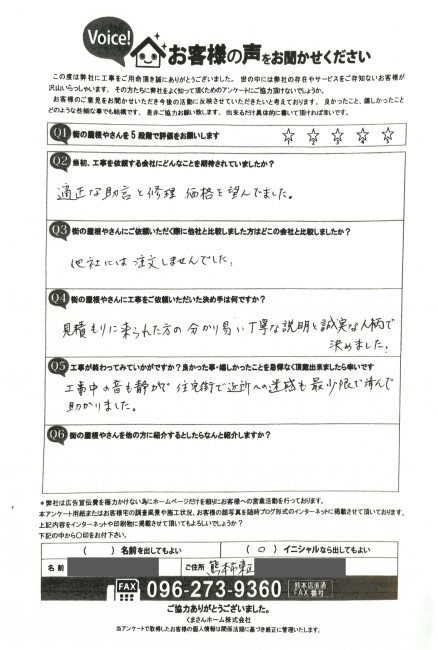 Voice!
お客様の声をお聞かせください
この度は弊社に工事をご用命頂き誠にありがとうございました。 世の中には弊社の存在やサービスをご存知ないお客様が
沢山いらっしゃいます。 その方たちに弊社をよく知って頂くためのアンケートにご協力頂けないでしょうか。
お客様のご意見をお聞かせいただき今後の活動に反映させていただきたいと考えております。 良かったこと、嬉しかったこと
どのような些細な事でも結構です。 是非ご協力お願い致します。 出来るだけ具体的に書いて頂ければ幸いです。
Q1 街の屋根やさんを5段階で評価をお願いします
1 2 3 4 5
Q2 当初、工事を依頼する会社にどんなことを期待されていましたか?
適正な助言と修理 価格を望んでました。
Q3 街の屋根やさんにご依頼いただく際に他社と比較しました方はどこの会社と比較しましたか?
他社には注文しませんでした。
Q4 街の屋根やさんに工事をご依頼いただいた決め手は何ですか?
見積もりに来られた方の分かり易い丁寧な説明と誠実な人柄で
決めました。
Q5 工事が終わってみていかがですか?良かった事・嬉しかったことを忌憚なく頂戴出来ましたら幸いです
工事中の音も静かで 住宅街で近所への迷惑も最少限で済んで
助かりました。
Q6 街の屋根やさんを他の方に紹介するとしたらなんと紹介しますか?
*弊社は広告宣伝費を極力かけない為にホームページだけを頼りにお客様への営業活動を行っております。
本アンケート用紙またはお客様宅の調査風景や施工状況、お客様の顔写真を随時ブログ形式のインターネットに掲載させて頂いております。
上記内容をインターネットや印刷物に掲載させて頂いてもよろしいでしょうか?
下記の中から〇印をお付け下さい。
( ) 名前を出してもよい ( ○ ) イニシャルなら出してもよい
名前 ご住所 熊本市東区
FAX 096-273-9360 熊本店直通 FAX番号
ご協力ありがとうございました。
くまさんホーム株式会社
当アンケートで取得したお客様の個人情報は関係法規に基づき厳正に管理いたします。